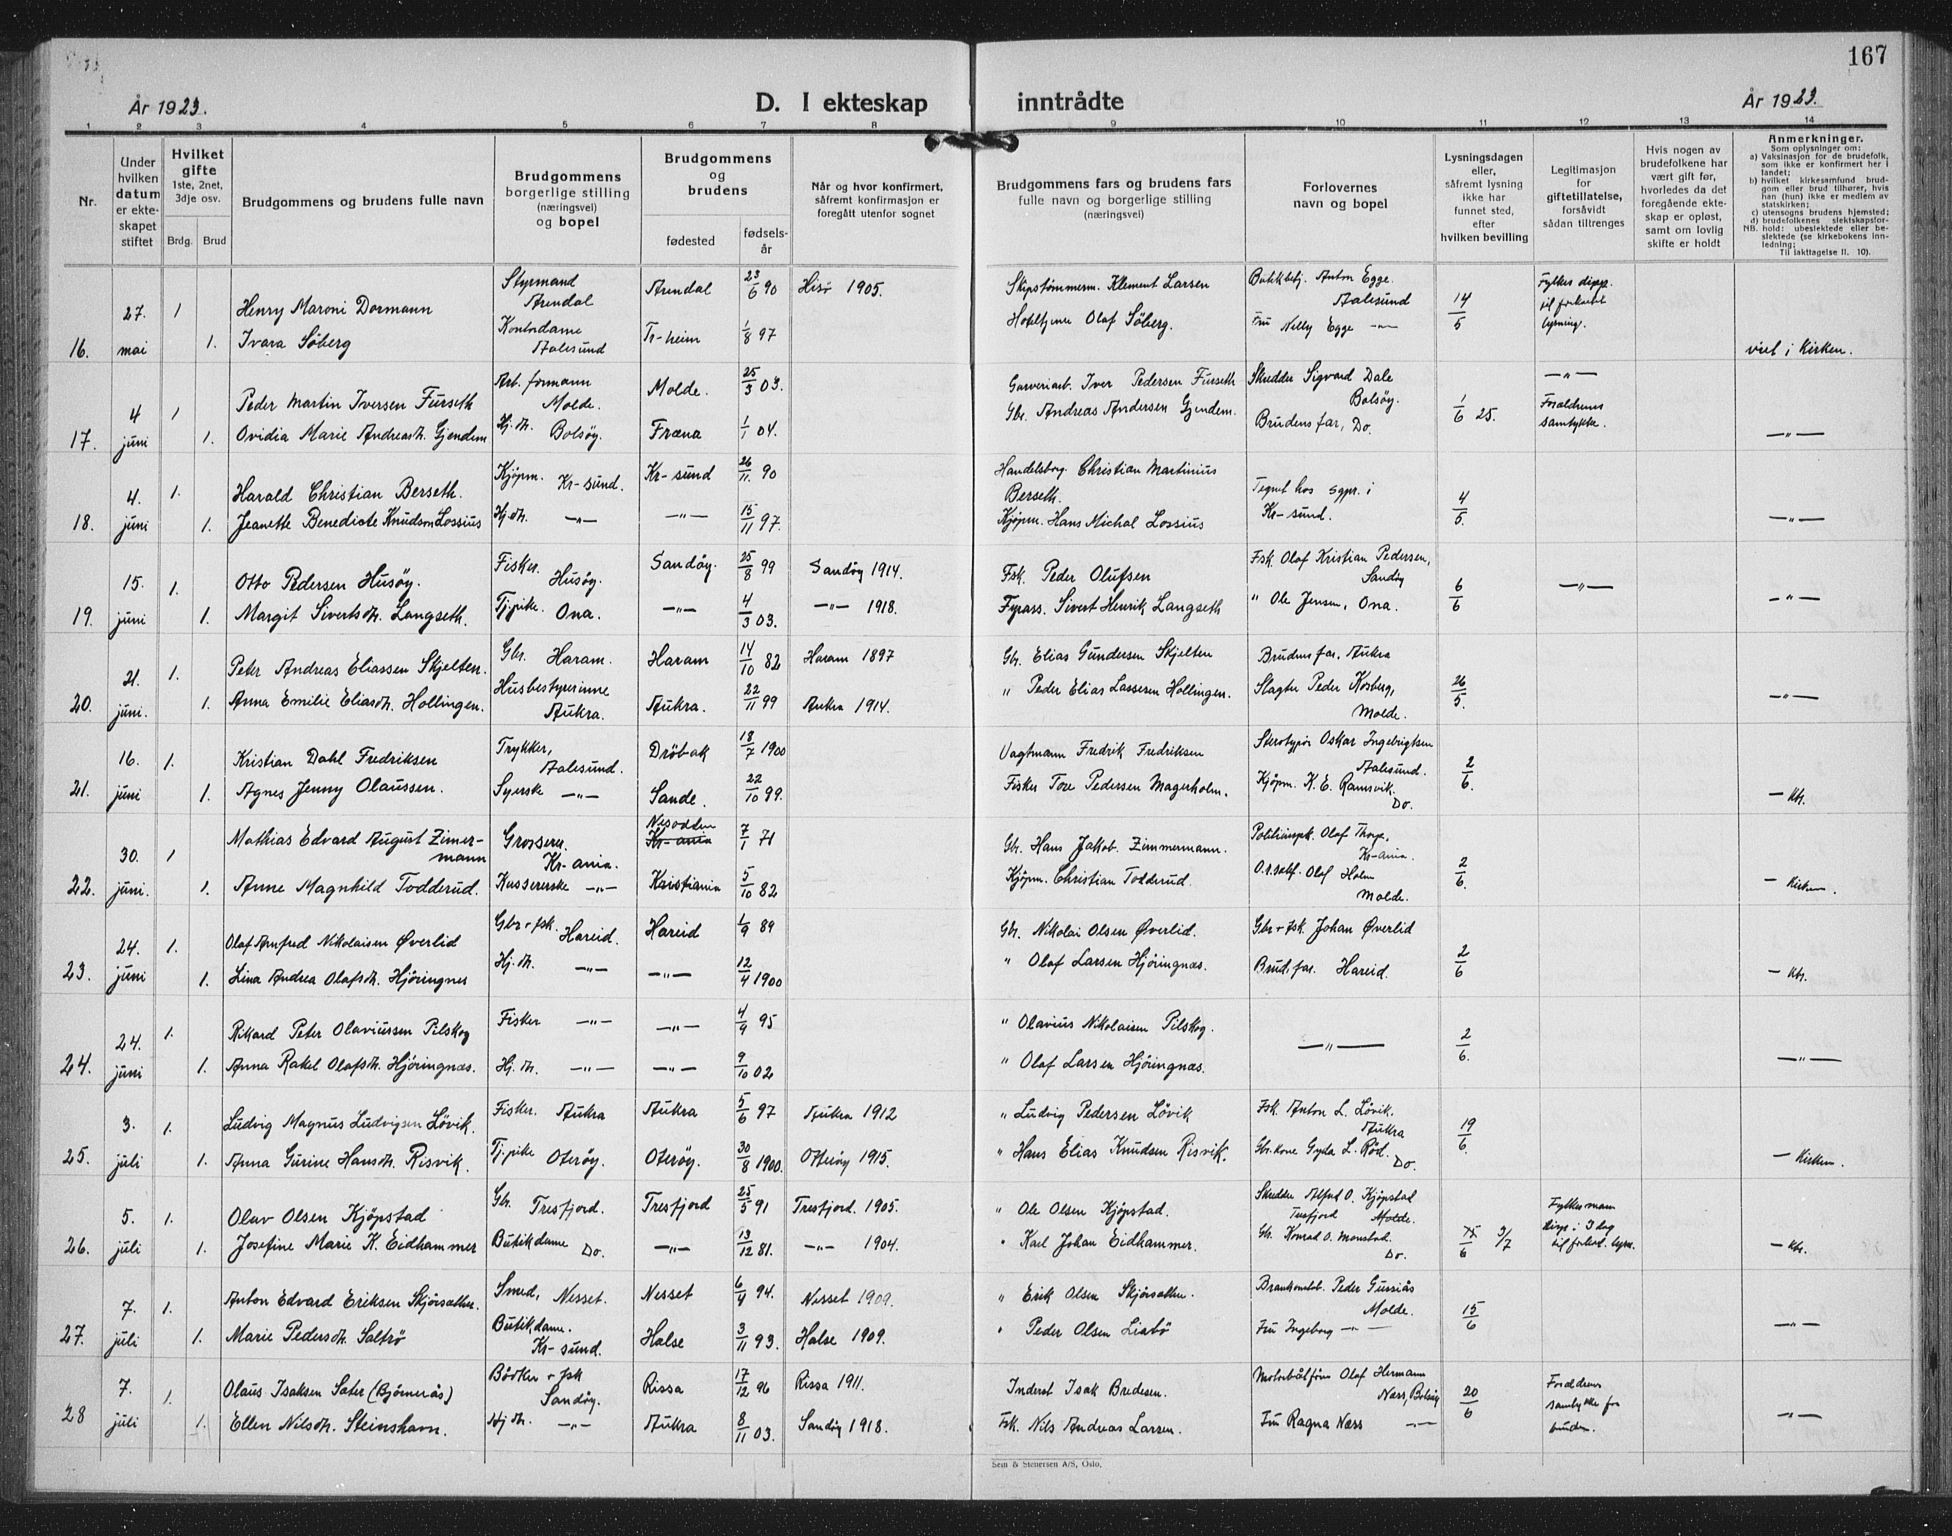 167
År 1923.
D. I ekteskap inntrådte
År 1923.
1 2 3 4 5 6 7 8 9 10 11 12 13 14
Nr.
Under hvilken datum er ekteskapet stiftet
Hvilket gifte 1ste, 2net, 3dje osv.
Brdg. Brud
Brudgommens og brudens fulle navn
Brudgommens borgerlige stilling (næringsvei) og bopel
Brudgommens og brudens
fødested fødselsår
Når og hvor konfirmert, såfremt konfirmasjon er foregått utenfor sognet
Brudgommens fars og brudens fars fulle navn og borgerlige stilling (næringsvei)
Forlovernes navn og bopel
Lysningsdagen eller, såfremt lysning ikke har funnet sted, efter hvilken bevilling
Legitimasjon for giftetillatelse, forsåvidt sådan tiltrenges
Hvis nogen av brudefolkene har vært gift før, hvorledes da det foregående ekteskap er opløst, samt om lovlig skifte er holdt
Anmerkninger.
Som oplysninger om:
a) Vaksinasjon for de brudefolk, som ikke er konfirmert her i landet;
b) hvilket kirkesamfund brudgom eller brud tilhører, hvis han (hun) ikke er medlem av statskirken;
c) utensogns brudens hjemsted;
d) brudefolkenes slektskapsforhold: ubeslektede eller beslektede (se kirkebokens innledning;
NB. Til iakttagelse II. 10).
27. 1 Henry Maroni Dormann Styrmand Arendal Arendal 23/6 90 Hisø 1905. Skipstømmerm. Klement Larsen Butikbetj. Anton Egge Aalesund 14/5 Fylkes disp. til forkortet lysning.
16. mai 1. Ivara Söberg Kontordame Aalesund Tr-heim 1/8 97 Hoteltjener Olaf Söberg. Fru Nelly Egge —"— viet i Kirken.
4 1 Peder Martin Iversen Furseth Arb. formann Molde. Molde. 25/3 03. Garveriarb. Iver Pedersen Furseth Skredder Sigvard Dale Bolsöy. 1/6 25. —"—
17. juni 1. Ovidia Marie Andreasdt. Gjendem Hj. dt. Bolsöy. Fræna 1/1 04. Gbr. Andreas Andersen Gjendem. Brudens far, Do. Forældrenes samtykke. —"—
4. 1. Harald Christian Berseth. Kjöpm. Kr-sund. Kr-sund 26/11 90 Handelsborg. Christian Martinius Berseth. Tegnet hos sgpr. i Kr-sund. 4/5
18. juni 1. Jeanette Benedicte Knudson Lossius Hj. dt. —"— —"— 15/11 97. Kjöpm. Hans Michal Lossius —"—
15. 1. Otto Pedersen Husöy. Fisker. Husöy. Sandöy. 25/8 99 Sandöy 1914. Fsk. Peder Olufsen Fsk. Olof Kristian Pedersen, Sandöy 6/6 —"—
19. juni 1. Margit Sivertsdt. Langseth. Tj.pike. Ona. —"— 4/3 03. —"— 1918. Fyrass. Sivert Henrik Langseth " Ole Jensen, Ona. —"—
21. 1. Peter Andreas Eliassen Skjelten. Gbr. Haram. Haram 14/10 82 Haram 1897 Gbr. Elias Gundersen Skjelten Brudens far, Aukra 26/5.
20. juni. 1. Anna Emilie Eliasdt. Hollingen. Husbestyrerinne Aukra. Aukra. 22/11 99 Aukra 1914. " Peder Elias Lassesen Hollingen. Slagter Peder Kosberg, Molde. —"—
16. 1. Kristian Dahl Fredriksen Trykker, Aalesund. Dröbak 18/7 1900 Vagtmann Fredrik Fredriksen Sterotypör Oskar Ingebrigtsen Aalesund. 2/6.
21. juni 1. Agnes Jenny Olaussen. Syerske —"— Sande. 22/10 99. Fisker Tore Pedersen Magerholm. Kjöpm. K. E. Ramsvik. Do. — Kk.
30. 1 Mathias Edvard August Zimermann Grosserer. Kr-ania. Nesodden Kr-ania 7/1 71 Gbr. Hans Jakob Zimmermann. Politiinspk. Olaf Thorp, Kr-ania. 2/6.
22. juni. 1. Anne Magnhild Todderud. Kassererske —"— Kristiania 5/10 82 Kjöpm. Christian Todderud. O.r.sakf. Olof Holm Molde. — Kirken.
24. 1. Olaf Arnfred Nikolaisen Øverlid Gbr + fsk. Hareid. Hareid 1/9 89 Gbr. Nikolai Olsen Øverlid. Gbr + fsk. Johan Øverlid 2/6
23. juni 1. Lina Andrea Olafsdt. Hjöringnes Hj. dt. —"— —"— 12/4 1900 " Olaf Larsen Hjöringnæs. Brud. far. Hareid. — Kk.
24. 1. Rikard Peter Olaviussen Pilskog Fisker —"— —"— 4/9 95 " Olavius Nikolaisen Pilskog. —"— 2/6.
24. juni 1. Anna Rakel Olafsdt. Hjöringnæs. Hj. dt. —"— —"— 9/10 02 " Olaf Larsen Hjöringnæs. —"—
3. 1. Ludvig Magnus Ludvigsen Lövik. Fisker. Aukra Aukra 5/6 97 Aukra 1912 " Ludvig Pedersen Lövik Fsk. Anton L. Lövik. Aukra 19/6
25. juli 1. Anna Gurine Hansdt. Risvik. Tj.pike Oteröy. Oteröy. 30/8 1900. Otteröy 1915. " Hans Elias Knudsen Risvik. Gbr.kone Gyda L. Röd. Do. — Kirken.
5. 1. Olav Olsen Kjöpstad Gbr. Tresfjord. Tresfjord 25/5 91 Tresfjord. 1905. " Ole Olsen Kjöpstad. Skredder Alfred O. Kjöpstad Tresfjord Molde. 15/6 3/7 Fylkesmann disp. i 3 dag til forkort. lysn.
26. juli 1. Josefine Marie K. Eidhammer Butikdame Do. —"— 13/12 81. —"— 1904. " Karl Johan Eidhammer. Gbr. Konrad O. Monstad Do. — Kk.
7. 1. Anton Edvard Eriksen Skjörsæther. Smed, Nesset. Nesset 6/4 94. Nesset 1909. " Erik Olsen Skjörsæther. Brankonstab. Peder Gussiås Molde. 15/6
27. juli 1. Marie Pedersdt. Saltrö Butikdame. Kr-sund. Halse 3/11 93. Halse 1909. " Peder Olsen Liabö Fru Ingeborg —"— —"—
7. 1. Olaus Isaksen Sater (Bjömerås) Bödker + fsk Sandöy. Rissa 17/12 96 Rissa 1911. Inderst Isak Bredesen. Motorbåtförer Olaf Hermann Næss, Bolsöy 20/6 Forældrenes samtykke for bruden.
28 juli 1. Ellen Nilsdt. Steinshavn. Hj dt. —"— Aukra 8/11 03. Sandöy 1918. Fsk. Nils Andreas Larsen. Fru Ragna Næss —"— —"—
Sem & Stenersen A/S, Oslo.